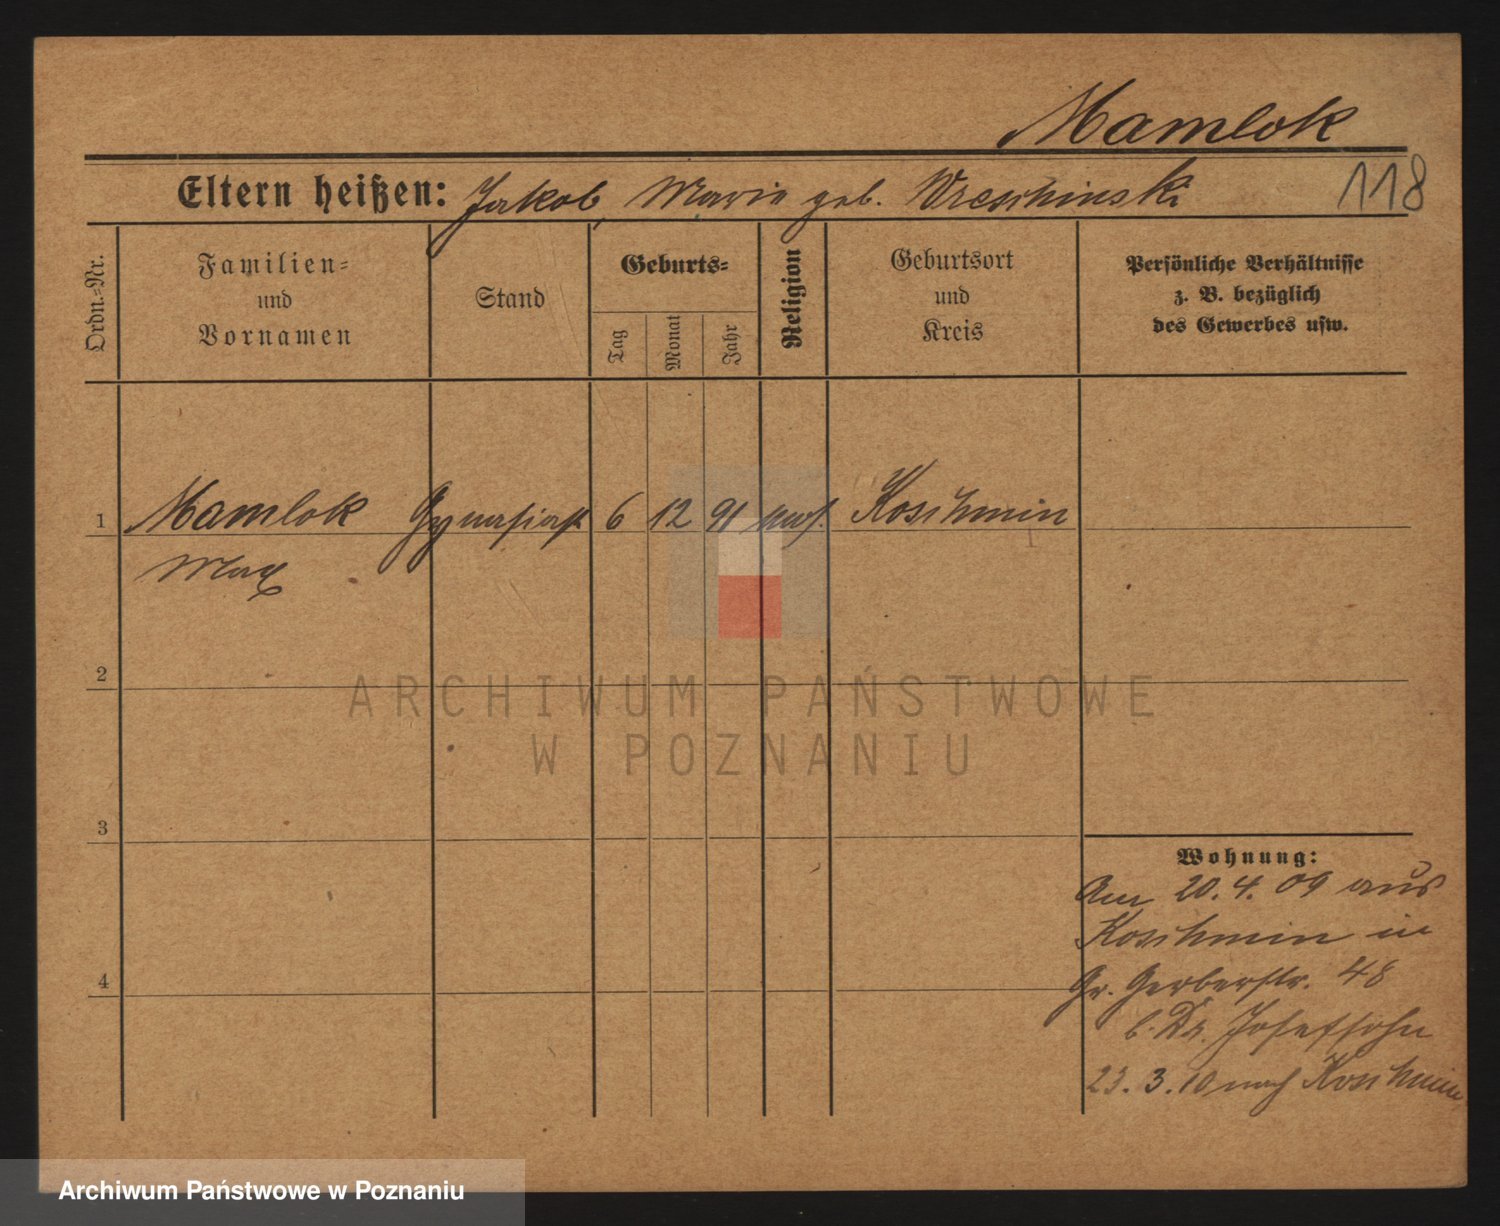 Mamlok
118
Eltern heißen: Jakob, Marie geb. Wreschinski
Ordn.-Nr.
Familien-
und
Vornamen
Stand
Geburts-
Tag
Monat
Jahr
Religion
Geburtsort
und
Kreis
Persönliche Verhältnisse
z. B. bezüglich
des Gewerbes usw.
1 Mamlok Gymnasiast 6 12 91 mos. Koschmin
Max
2
3
4
Wohnung:
Am 20. 4. 09 aus
Koschmin in
Gr. Gerberstr. 48
b. Dr. Josefsohn
23. 3. 10 nach Koschmin
ARCHIWUM PAŃSTWOWE
W POZNANIU
Archiwum Państwowe w Poznaniu